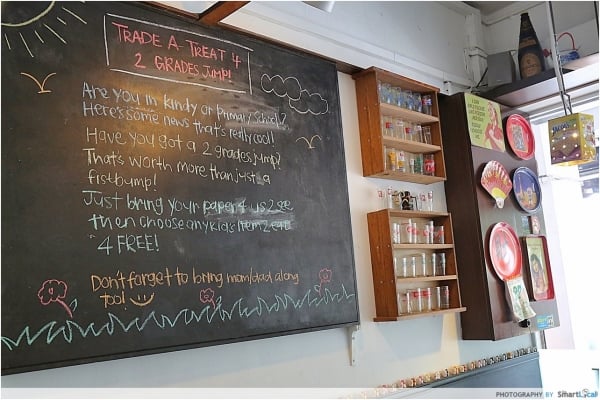 TRADE A TREAT 4
2 GRADES JUMP!
Are you in kindy or primary School?
Here's some news that's really cool!
Have you got a 2 grades jump?
That's worth more than just a
fistbump!
Just bring your paper 4 us 2 see
then choose any kids item 2 eat
4 FREE!
Don't forget to bring mom/dad along
too!
PHOTOGRAPHY BY SmartLocal